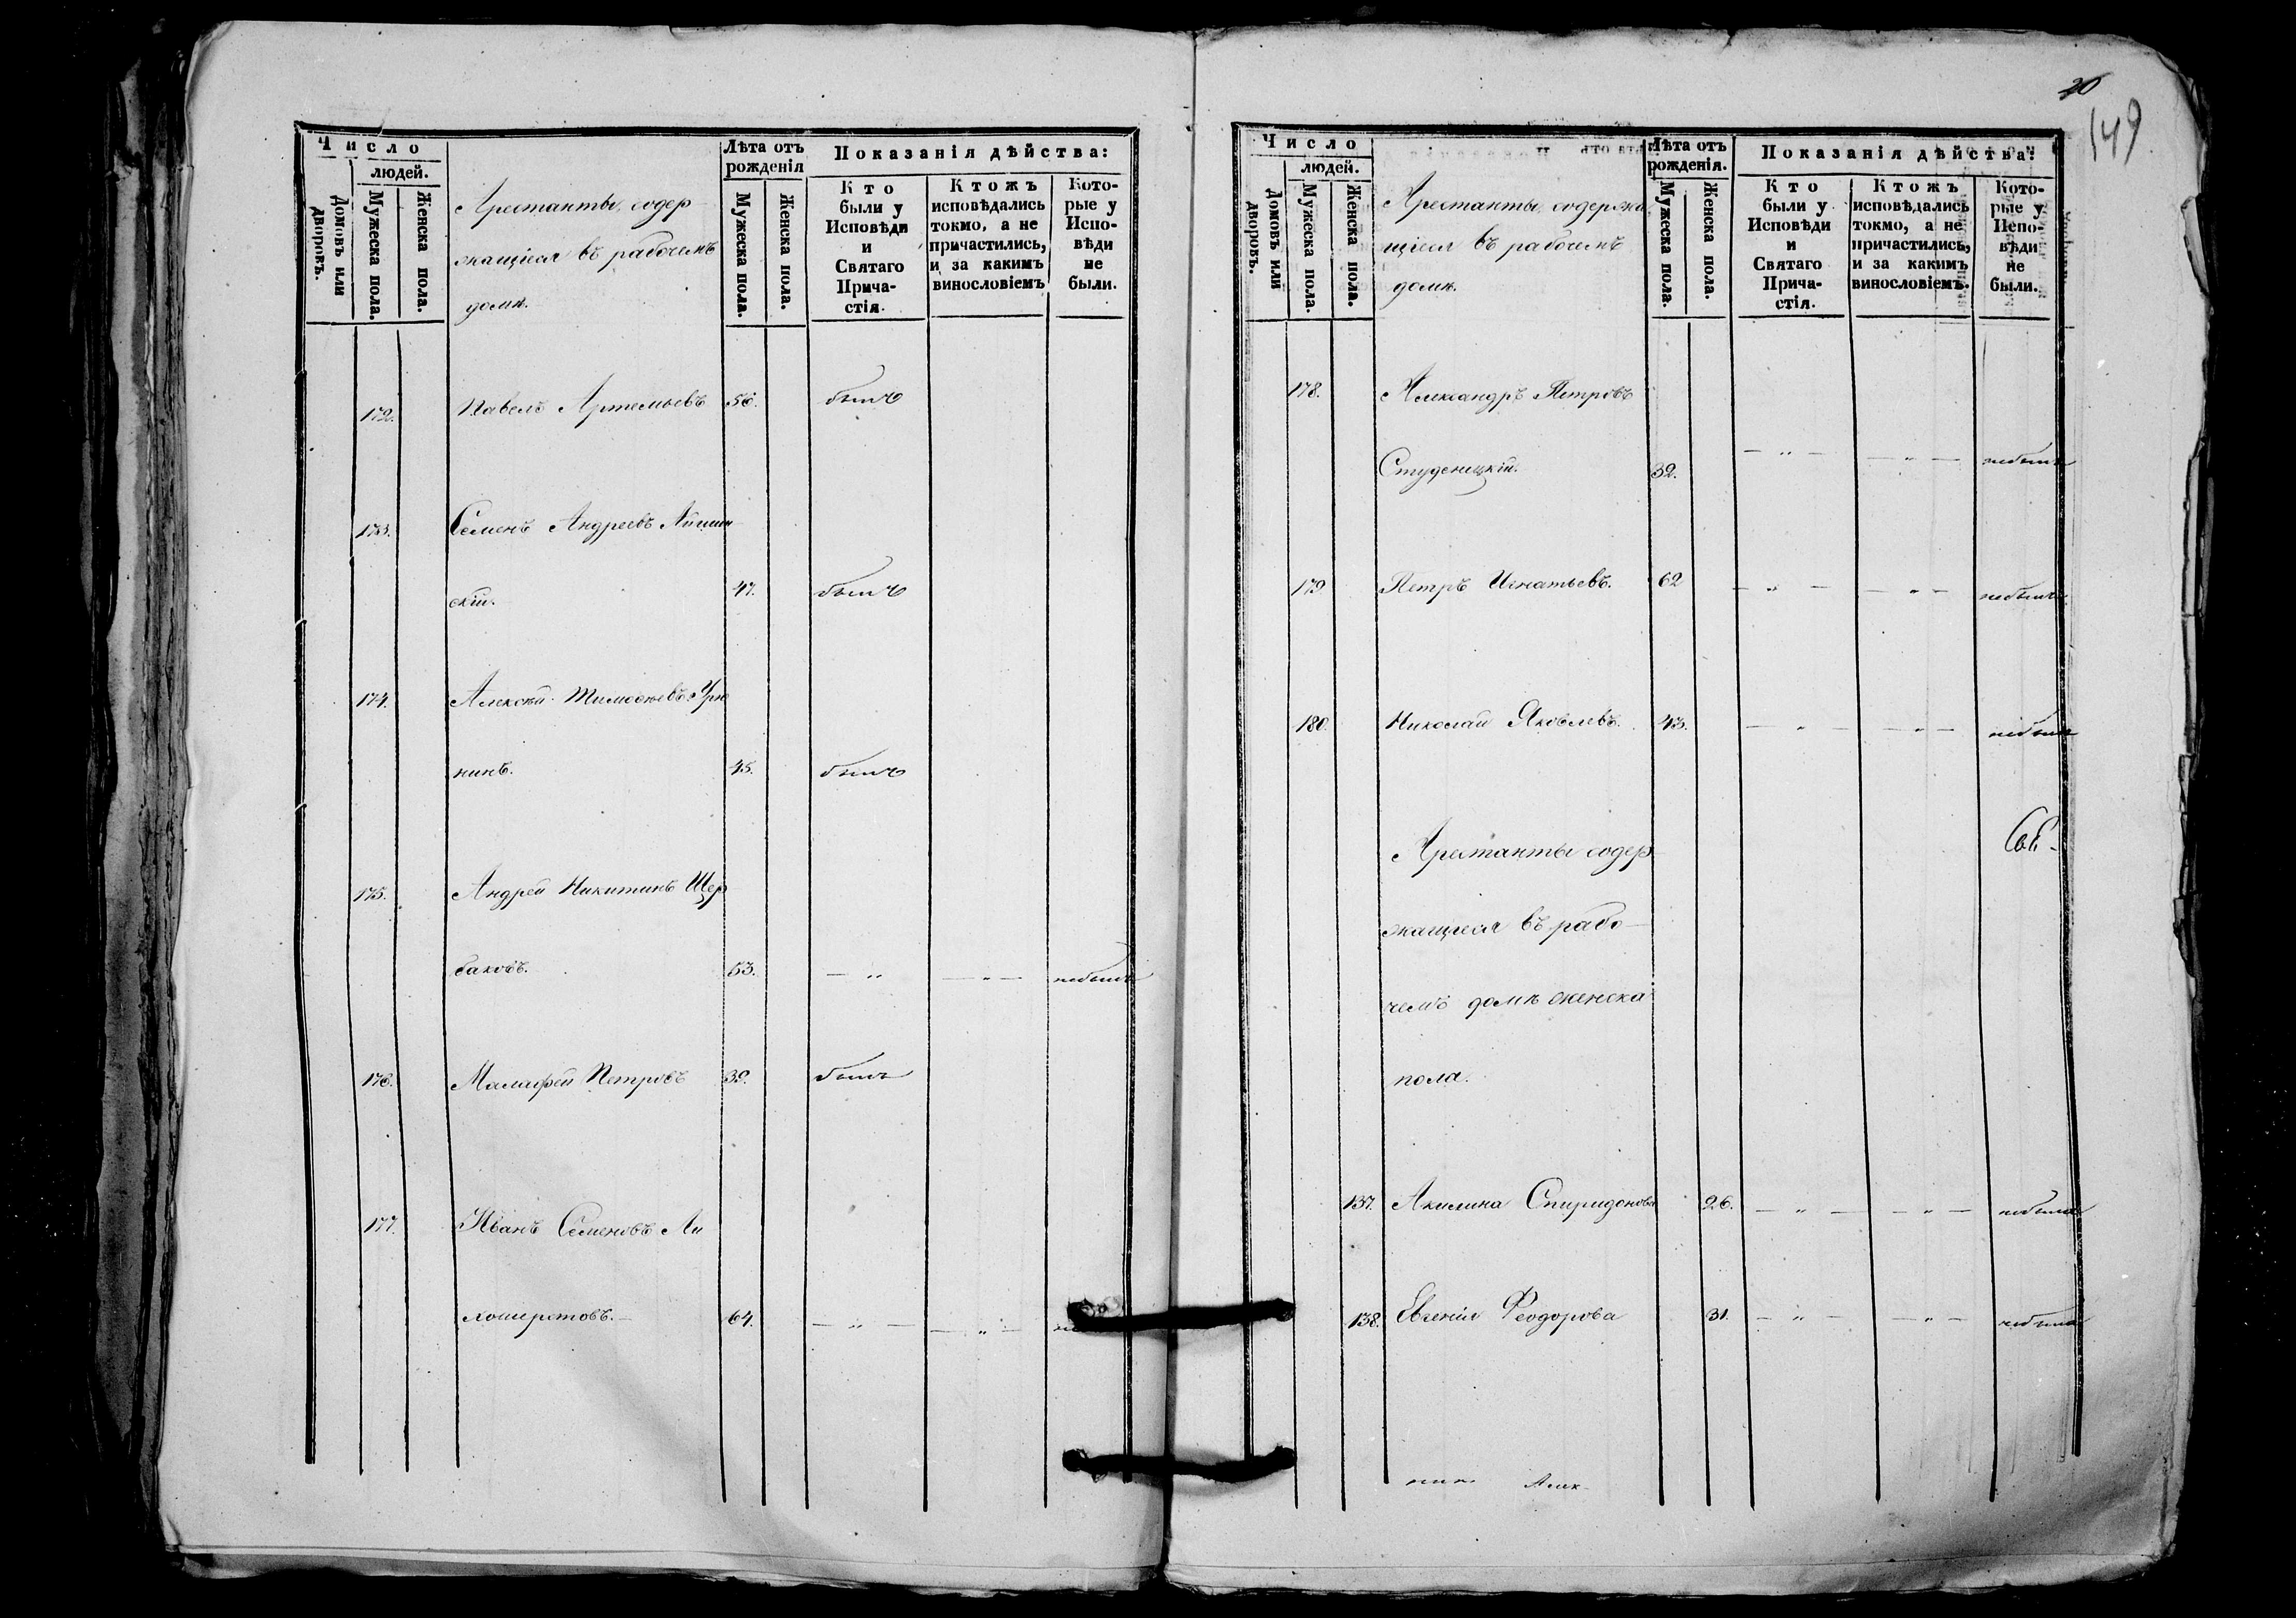 Число
людей.
Домовъ или дворовъ.
Мужеска пола.
Женска пола.
Арестанты, содер
жащіеся въ рабочемъ
домѣ.
Лѣта отъ рожденія
Мужеска пола.
Женска пола.
Показанія дѣйства:
Кто были у Исповѣди и Святаго Прича-стія.
Ктожъ исповѣдались токмо, а не причастились, и за какимъ винословіемъ
Кото-рые у Испо-вѣди не были.
172. Павелъ Артемьевъ 56. былъ
173. Семенъ Андреевъ
скій. 47. былъ
174. Алексѣй Тимоѳеевъ
нинъ. 45. былъ
175. Андрей Никитинъ Щер
баковъ. 53. — „ — „ — небылъ
176. Малафей Петровъ 39. былъ
177. Иванъ Семеновъ Ли
64. — „ — — „ —
20
149
Число
людей.
Домовъ или дворовъ.
Мужеска пола.
Женска пола.
Арестанты, содержа
щіеся въ рабочемъ
домѣ.
Лѣта отъ рожденія.
Мужеска пола.
Женска пола.
Показанія дѣйства:
Кто были у Исповѣди и Святаго Прича-стія.
Ктожъ исповѣдались токмо, а не причастились, и за какимъ винословіемъ.
Кото-рые у Испо-вѣди не были.
178. Александръ Петровъ
Студеницкій. 32. — „ — — „ — небылъ
179. Петръ Игнатьевъ. 62 — „ — — „ — небылъ
180. Николай Яковлевъ. 43. — „ — — „ — небылъ
Арестанты содер
жащіеся въ рабо—
чемъ домѣ женска
пола.
137. Акилина Спиридонова 26. — „ — — „ — небыла
138. Евгенія Феодорова 31. — „ — — „ — небыла